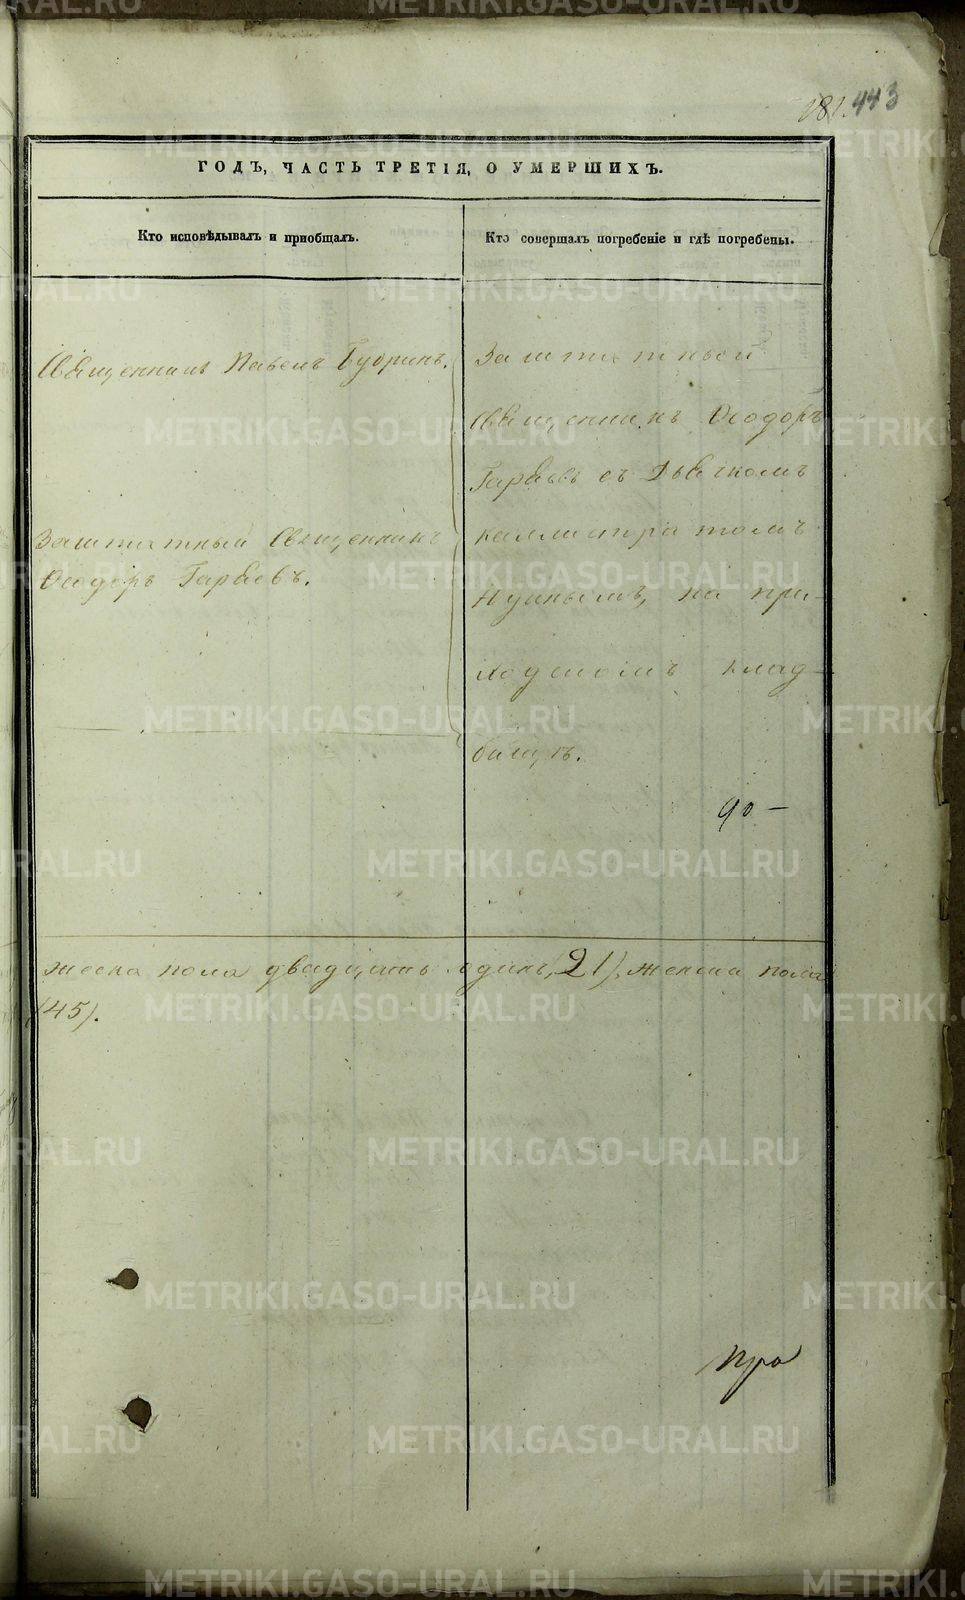 181. 443
ГОДЪ, ЧАСТЬ ТРЕТІЯ, О УМЕРШИХЪ.
Кто исповѣдывалъ и пріобщалъ.
Кто совершалъ погребеніе и гдѣ погребены.
Священникъ Павелъ Бубринъ.
Заштатный Священникъ
Ѳеодоръ Гаряевъ.
Заштатный
Священникъ Ѳеодоръ
Гаряевъ съ Дьячкомъ
Каллистратомъ
на при-
ходскомъ клад-
бищѣ.
90 —
жеска пола двадцать одинъ, 21), женска пола
(45).
Про
METRIKI.GASO-URAL.RU